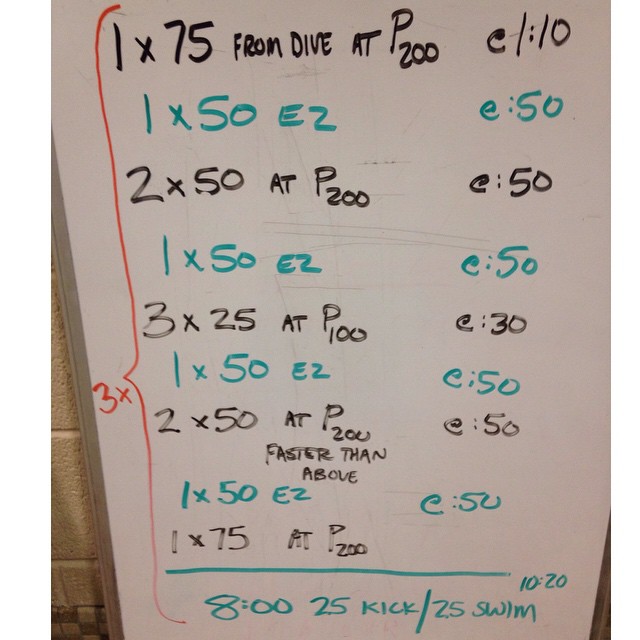 1 x 75 FROM DIVE AT P200 @ 1:10
1 x 50 EZ @ :50
2 x 50 AT P200 @ :50
1 x 50 EZ @ :50
3 x 25 AT P100 @ :30
1 x 50 EZ @ :50
3x
2 x 50 AT P200 @ :50
FASTER THAN
ABOVE
1 x 50 EZ @ :50
1 x 75 AT P200
10:20
8:00 25 KICK/25 SWIM